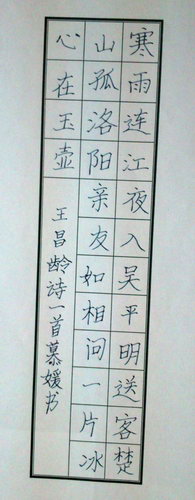 寒雨连江夜入吴平明送客楚
山孤洛阳亲友如相问一片冰
心在玉壶
王昌龄诗一首慕媛书